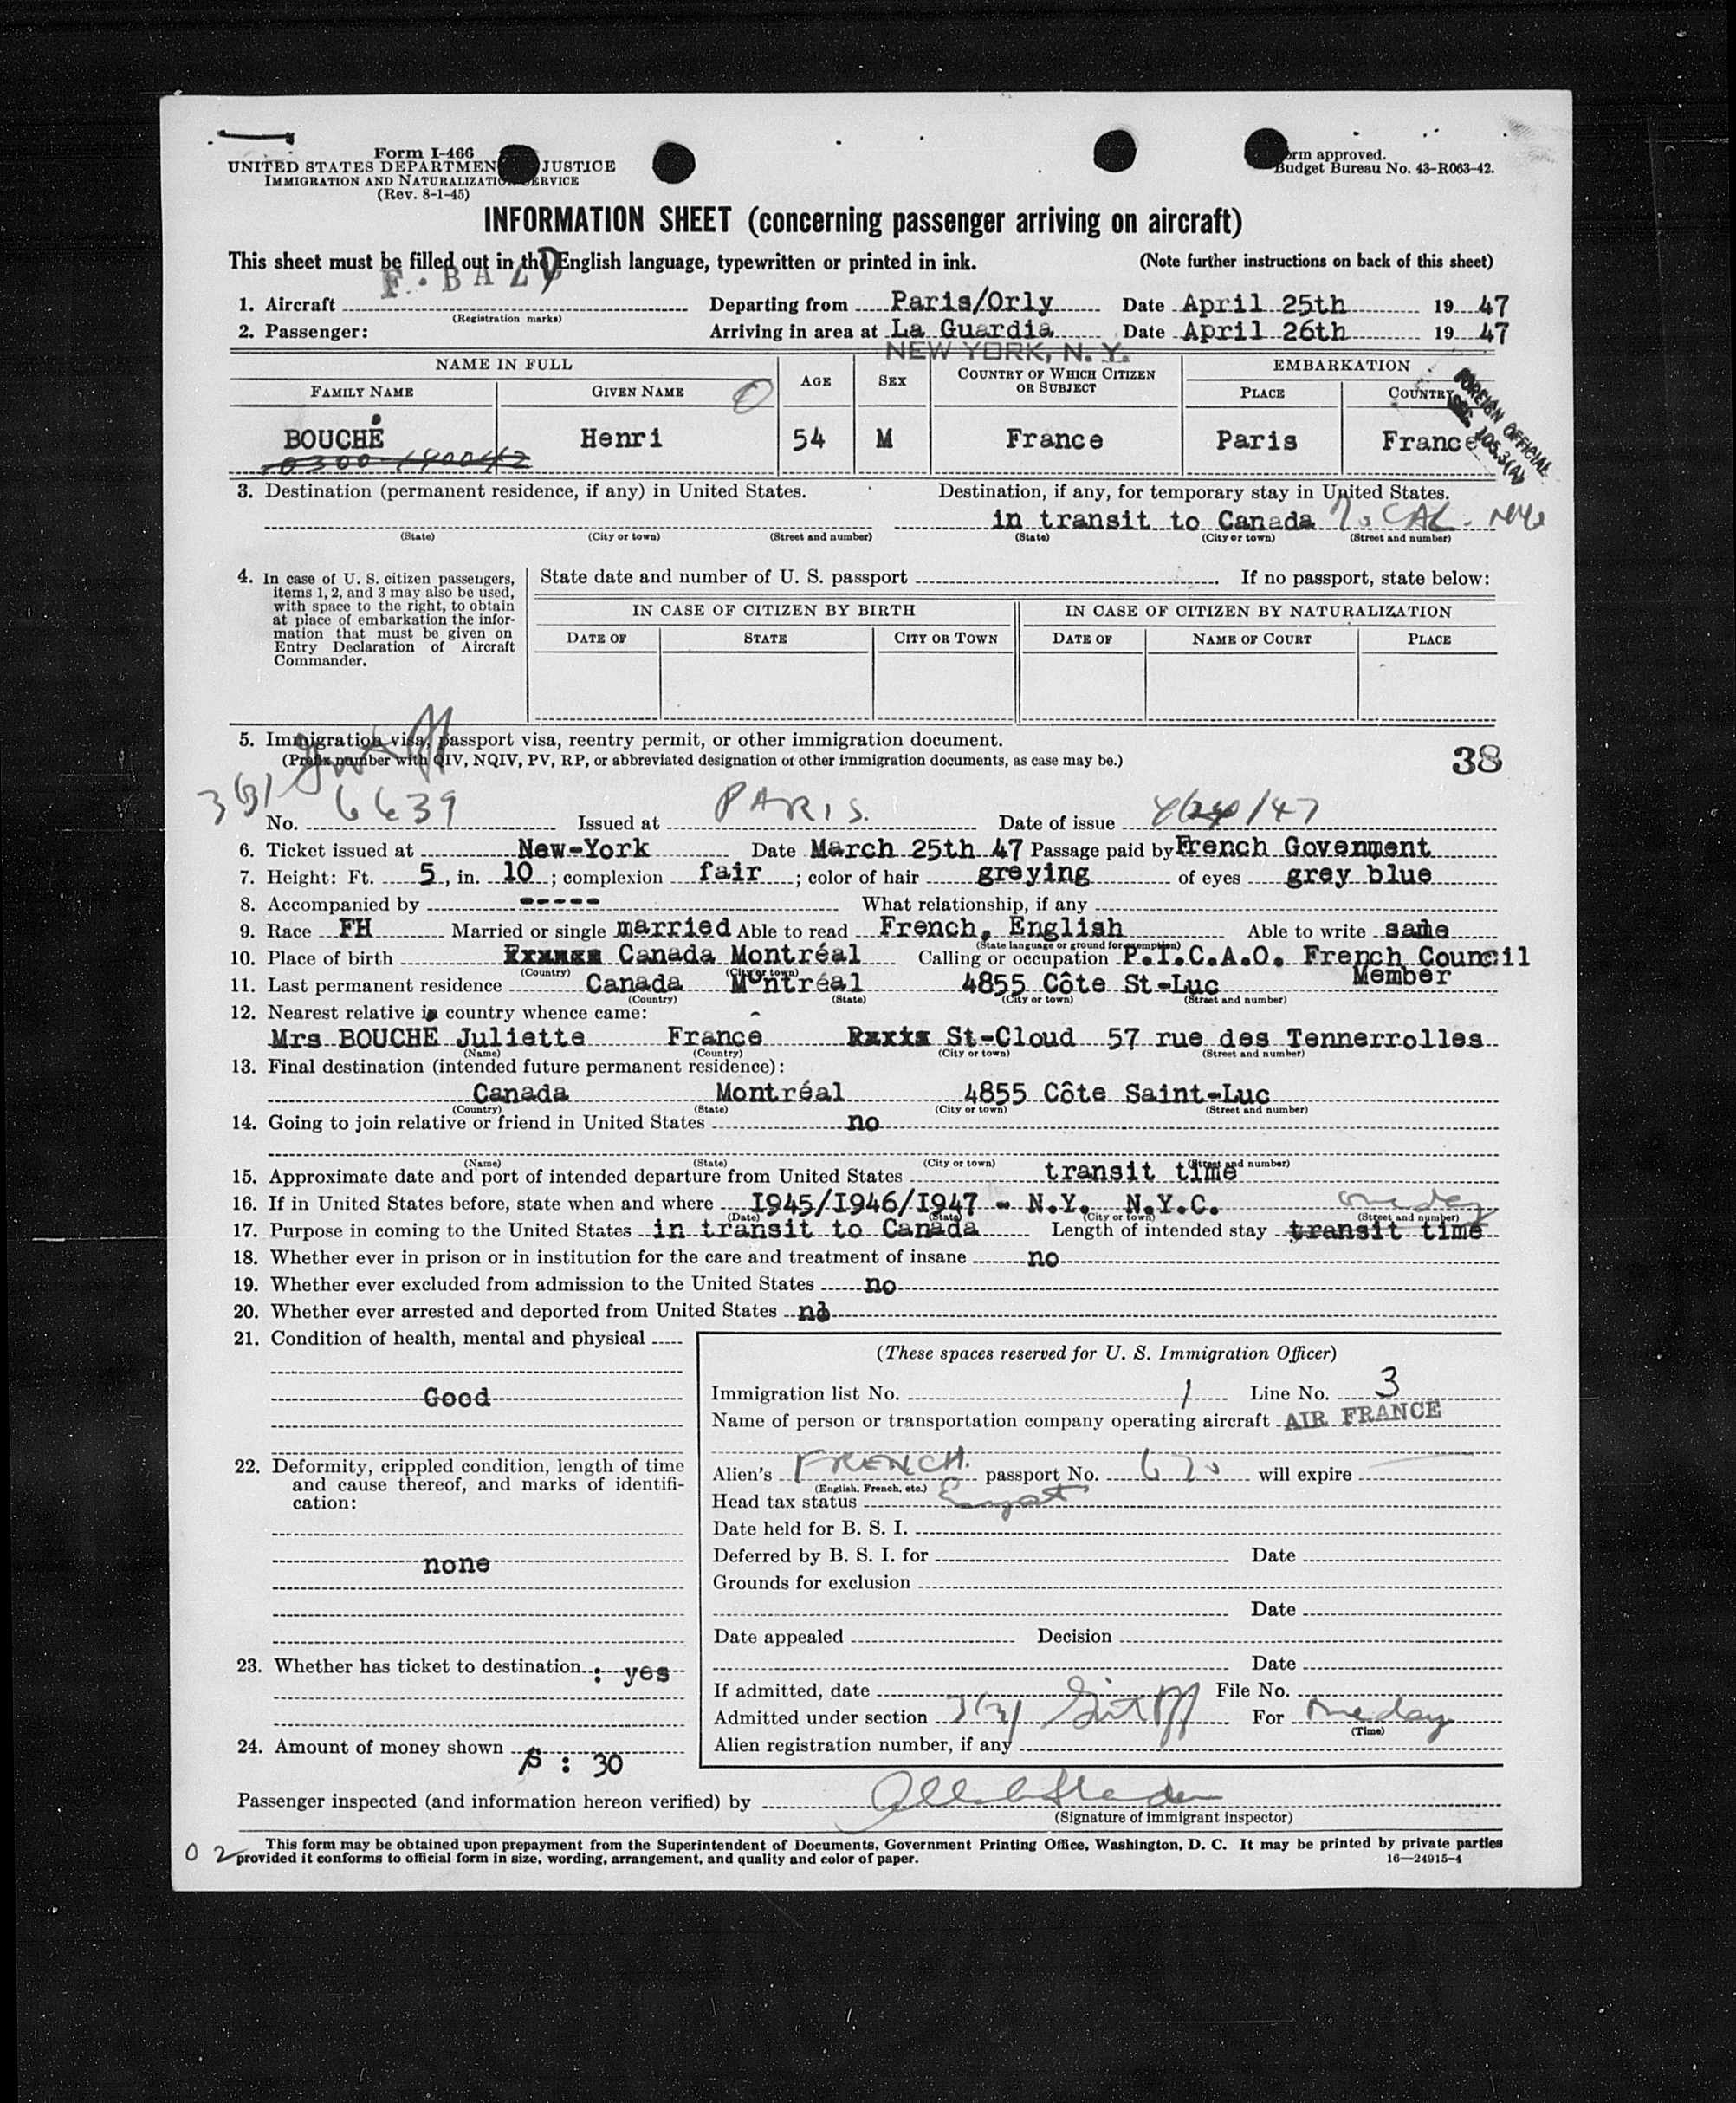 Form I-466
UNITED STATES DEPARTMEN JUSTICE
IMMIGRATION AND NATURALIZATION SERVICE
(Rev. 8-1-45)
orm approved.
Budget Bureau No. 43-R063-42.
INFORMATION SHEET (concerning passenger arriving on aircraft)
This sheet must be filled out in the English language, typewritten or printed in ink. (Note further instructions on back of this sheet)
F·BAZD
1. Aircraft (Registration marks) Departing from Paris/Orly Date April 25th 19 47
2. Passenger: Arriving in area at La Guardia Date April 26th 19 47
NEW YORK, N. Y.
NAME IN FULL AGE SEX COUNTRY OF WHICH CITIZEN OR SUBJECT EMBARKATION
FAMILY NAME GIVEN NAME PLACE COUNTRY
FOREIGN OFFICIAL
SEC. 105.3(A)
BOUCHÉ Henri 54 M France Paris France
0300 190042
3. Destination (permanent residence, if any) in United States. Destination, if any, for temporary stay in United States.
in transit to Canada
(State) (City or town) (Street and number) (State) (City or town) (Street and number)
4. In case of U. S. citizen passengers, items 1, 2, and 3 may also be used, with space to the right, to obtain at place of embarkation the information that must be given on Entry Declaration of Aircraft Commander.
State date and number of U. S. passport . If no passport, state below:
IN CASE OF CITIZEN BY BIRTH IN CASE OF CITIZEN BY NATURALIZATION
DATE OF STATE CITY OR TOWN DATE OF NAME OF COURT PLACE
5. Immigration visa, passport visa, reentry permit, or other immigration document.
(Prefix number with QIV, NQIV, PV, RP, or abbreviated designation of other immigration documents, as case may be.)
38
No. 6639 Issued at PARIS. Date of issue 4/24/47
6. Ticket issued at New-York Date March 25th 47 Passage paid by French Govenment
7. Height: Ft. 5, in. 10; complexion fair; color of hair greying of eyes grey blue
8. Accompanied by ----- What relationship, if any
9. Race FH Married or single married Able to read French, English Able to write same
(State language or ground for exemption)
10. Place of birth Canada Montréal Calling or occupation P.I.C.A.O. French Council Member
(Country) (City or town)
11. Last permanent residence Canada Montréal 4855 Côte St-Luc
(Country) (State) (City or town) (Street and number)
12. Nearest relative in country whence came:
Mrs BOUCHE Juliette France St-Cloud 57 rue des Tennerrolles
(Name) (Country) (City or town) (Street and number)
13. Final destination (intended future permanent residence):
Canada Montréal 4855 Côte Saint-Luc
(Country) (State) (City or town) (Street and number)
14. Going to join relative or friend in United States no
(Name) (State) (City or town) (Street and number)
15. Approximate date and port of intended departure from United States transit time
16. If in United States before, state when and where I945/I946/I947 - N.Y. N.Y.C.
(Date) (State) (City or town) (Street and number)
one day
17. Purpose in coming to the United States in transit to Canada Length of intended stay transit time
18. Whether ever in prison or in institution for the care and treatment of insane no
19. Whether ever excluded from admission to the United States no
20. Whether ever arrested and deported from United States no
21. Condition of health, mental and physical
Good
22. Deformity, crippled condition, length of time and cause thereof, and marks of identification:
none
23. Whether has ticket to destination : yes
24. Amount of money shown $ : 30
(These spaces reserved for U. S. Immigration Officer)
Immigration list No. 1 Line No. 3
Name of person or transportation company operating aircraft AIR FRANCE
Alien's FRENCH. passport No. 670 will expire
(English, French, etc.)
Head tax status
Date held for B. S. I.
Deferred by B. S. I. for Date
Grounds for exclusion
Date
Date appealed Decision
Date
If admitted, date File No.
Admitted under section 3(3) For One day
(Time)
Alien registration number, if any
Passenger inspected (and information hereon verified) by
(Signature of immigrant inspector)
02
This form may be obtained upon prepayment from the Superintendent of Documents, Government Printing Office, Washington, D. C. It may be printed by private parties
provided it conforms to official form in size, wording, arrangement, and quality and color of paper. 16—24915-4